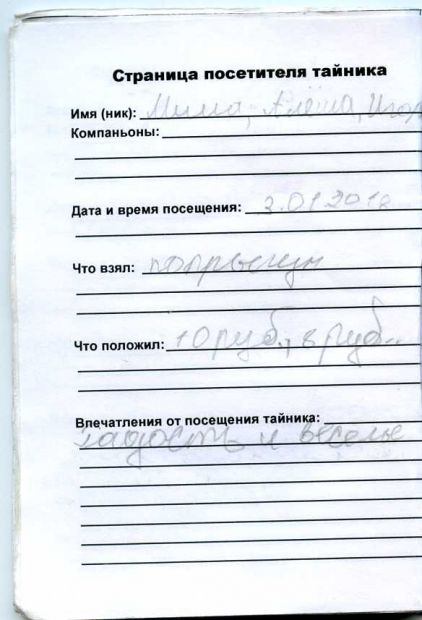 Страница посетителя тайника
Имя (ник): Миша, Алёша, Игор
Компаньоны:
Дата и время посещения: 3.01.2010
Что взял: попрыгун
Что положил: 10 руб.,
Впечатления от посещения тайника:
радость и веселье